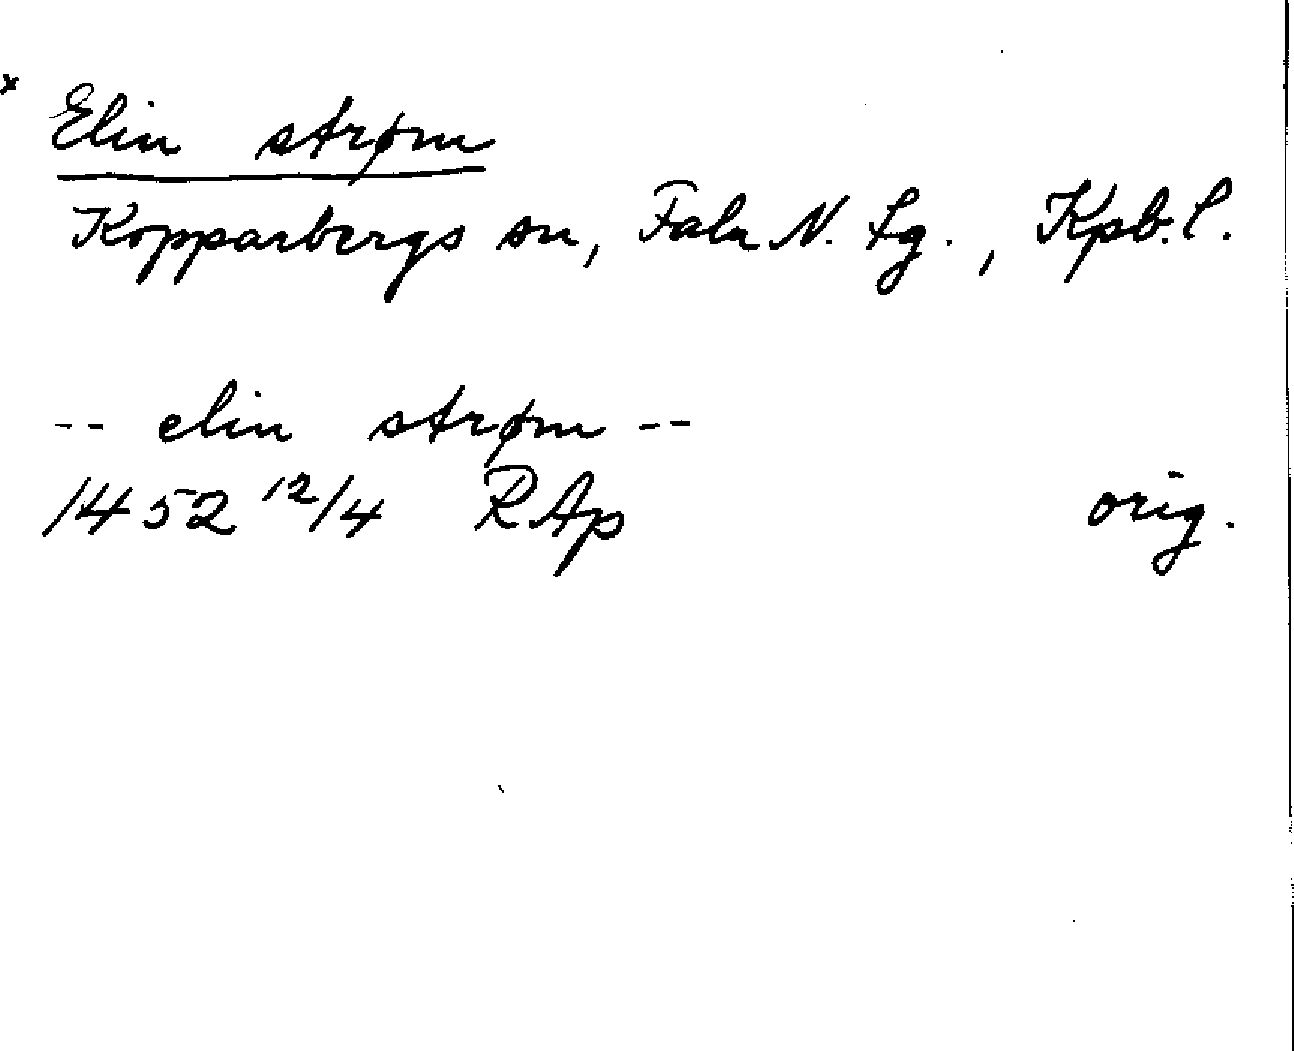 x Elin strøm
Kopparbergs sn, Falu N. tg., Kpb. l.
-- elin strøm --
1452 12/4 RAp orig.